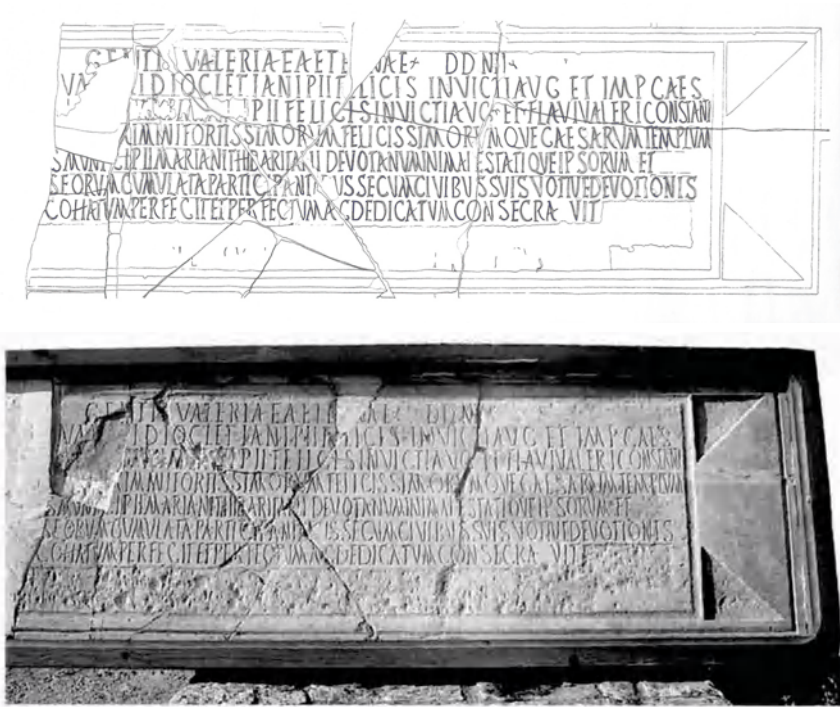 GENTI VALERIAE AETE NAE DD NN
VA DIOCLETIANI PII FELICIS INVICTI AVG ET IMP CAES
PII FELICIS INVICTI AVG ET FLAVI VALERI CONSTANTI
IMI FORTISSIMORVM FELICISSIMORVMQVE CAESARVM TEMPLVM
MVNICIPII MARIANI THIBARITANI DEVOTA NVMINI MAIESTATIQVE IPSORVM ET
SEORVM CVMVLATA PARTICIPANTIBVS SECVM CIVIBVS SVIS VOTIVE DEVOTIONIS
COHATVM PERFECIT ET PERFECTVM AC DEDICATVM CONSECRAVIT
GENTI VALERIAE AETE NAE DD NN
VA DIOCLETIANI PII FELICIS INVICTI AVG ET IMP CAES
PII FELICIS INVICTI AVG ET FLAVI VALERI CONSTANTI
IMI FORTISSIMORVM FELICISSIMORVMQVE CAESARVM TEMPLVM
MVNICIPII MARIANI THIBARITANI DEVOTA NVMINI MAIESTATIQVE IPSORVM ET
SEORVM CVMVLATA PARTICIPANTIBVS SECVM CIVIBVS SVIS VOTIVE DEVOTIONIS
COHATVM PERFECIT ET PERFECTVM AC DEDICATVM CONSECRAVIT